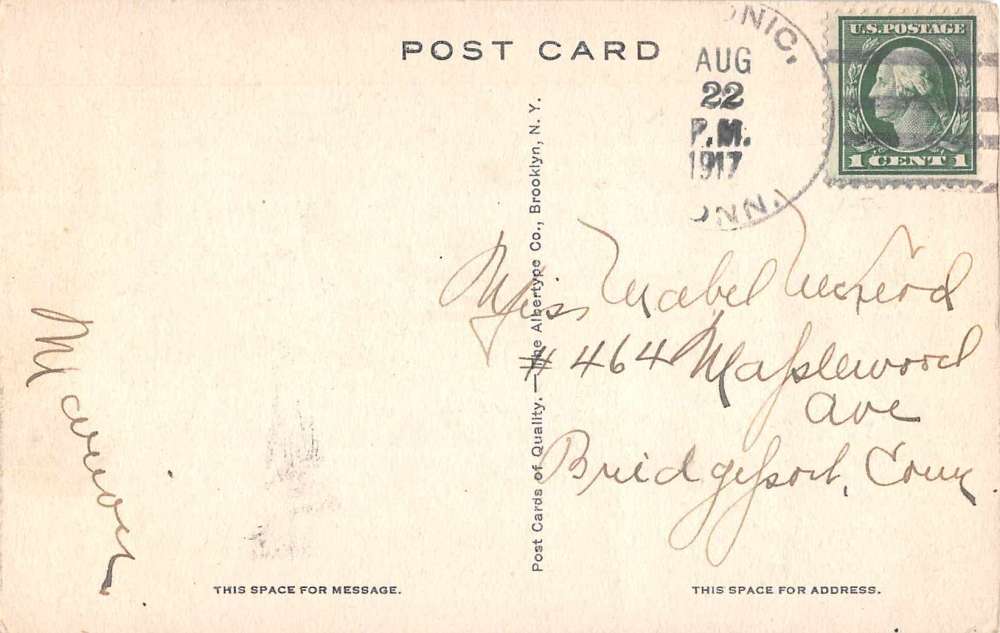 POST CARD
ONIC,
AUG
22
P.M.
1917
ONN.
U.S. POSTAGE
1 CENT 1
Marion
Post Cards of Quality. — The Albertype Co., Brooklyn, N. Y.
Miss Mabel
#464 Maplewood
Ave
Bridgeport, Conn
THIS SPACE FOR MESSAGE.
THIS SPACE FOR ADDRESS.